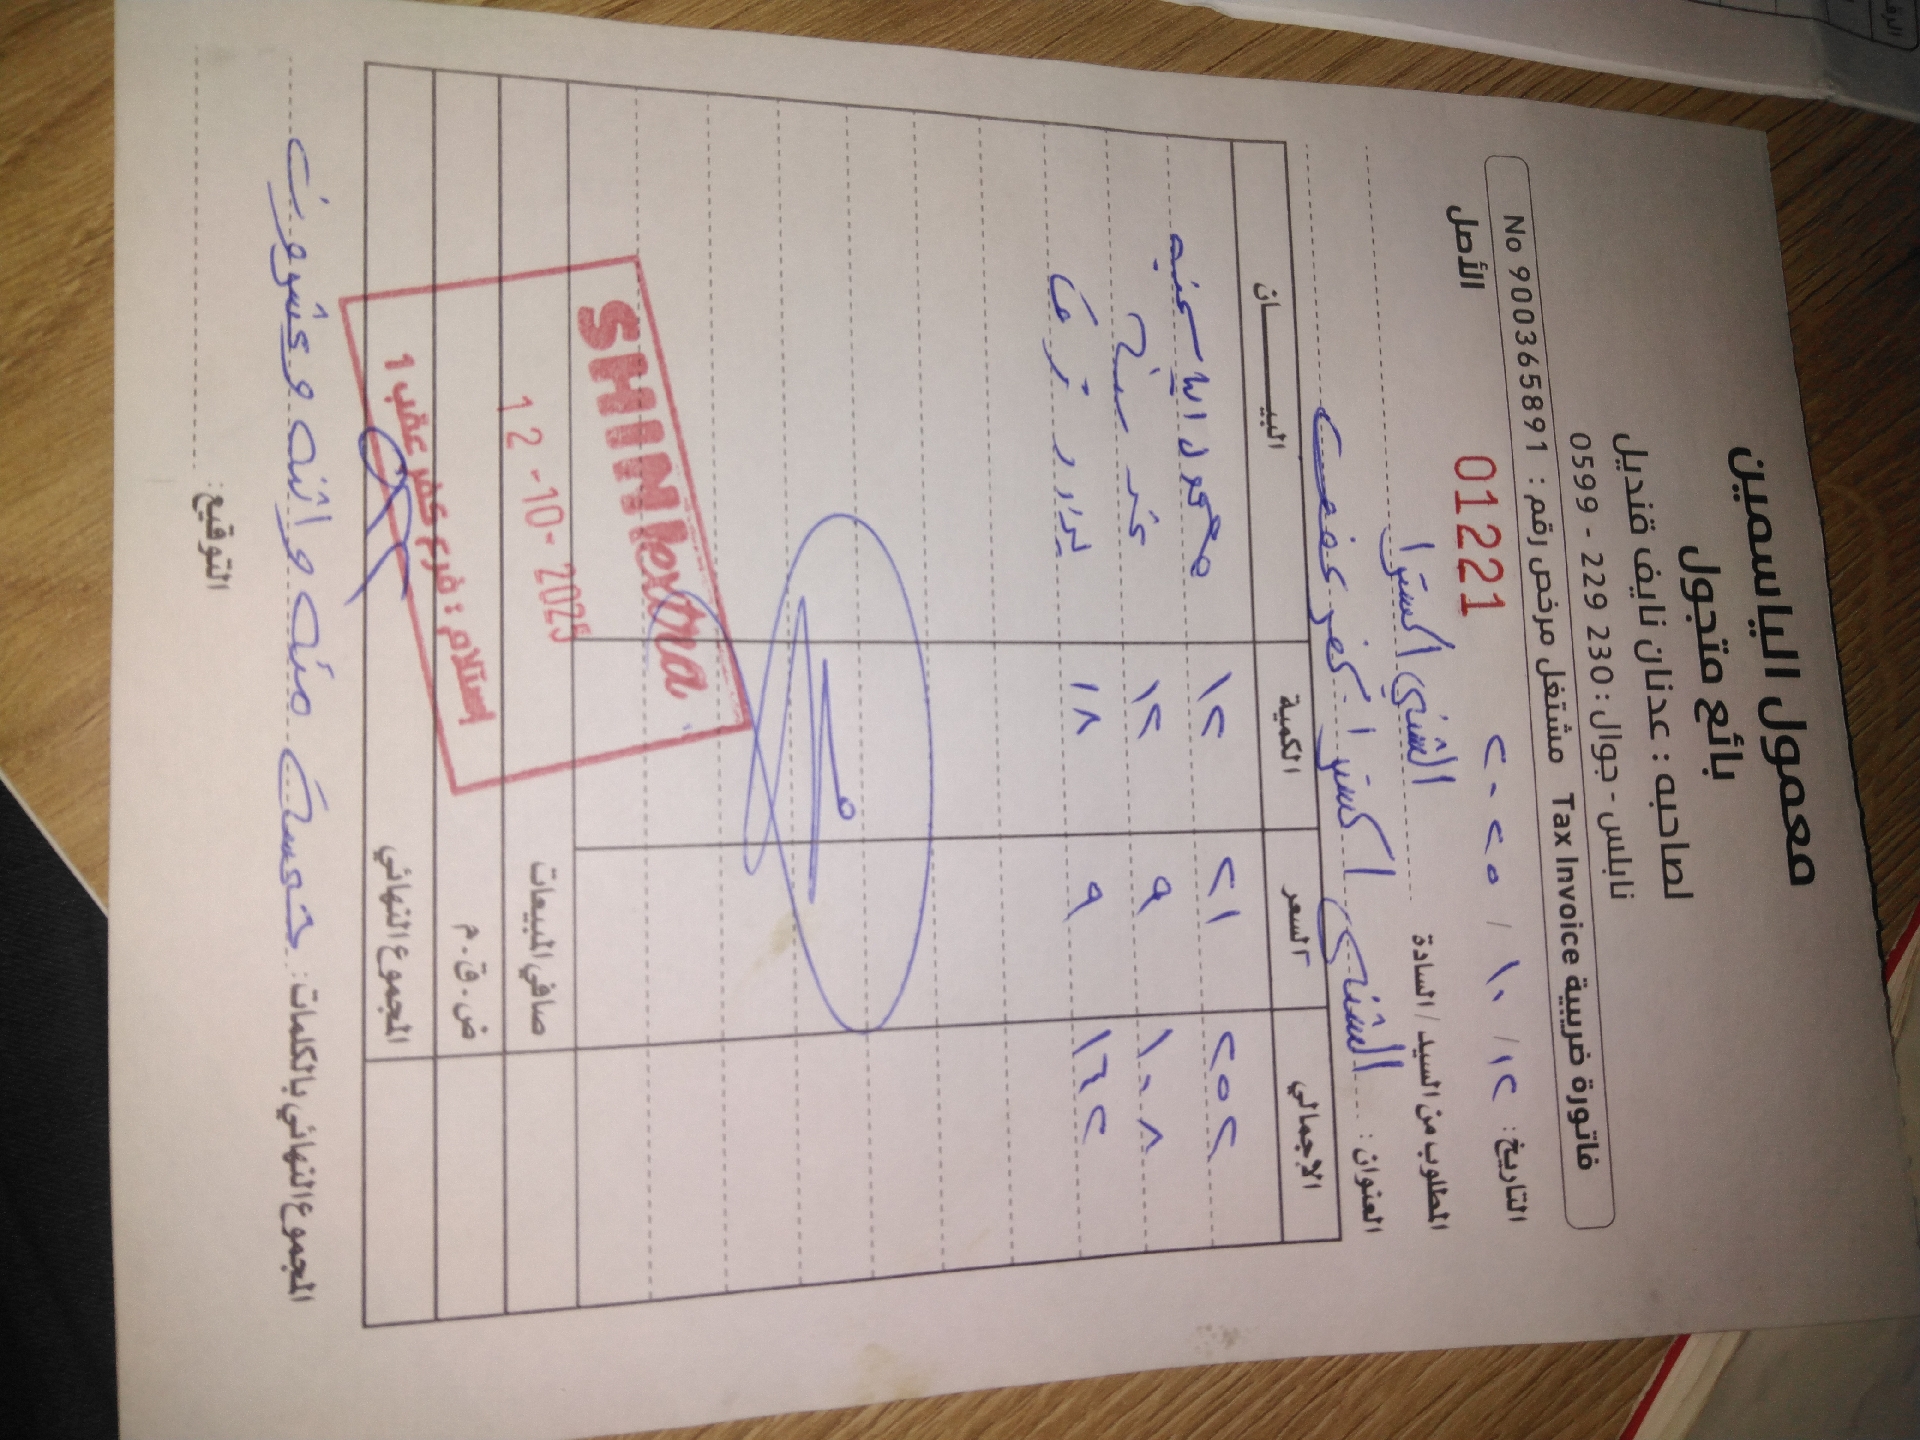 معمول الياسمين
بائع متجول
لصاحبه : عدنان نايف قنديل
نابلس - جوال : 230 229 - 0599
فاتورة ضريبية Tax Invoice مشتغل مرخص رقم : No 900365891
التاريخ : ١٢ / ١٠ / ٢٠٢٥ 01221 الأصل
المطلوب من السيد / السادة الشني اكسترا
العنوان : الشني اكسترا - كفر عقب
الإجمالي السعر الكمية البيـــــــان
٢٥٢ ٢١ ١٢
١٠٨ ٩ ١٢
١٦٢ ٩ ١٨
صافي المبيعات
ض . ق . م
المجموع النهائي
SHINI extra
12 -10- 2025
إستلام : فرع كفر عقب 1
المجموع النهائي بالكلمات : خمسة مئه و اثنه وعشرون
التوقيع :